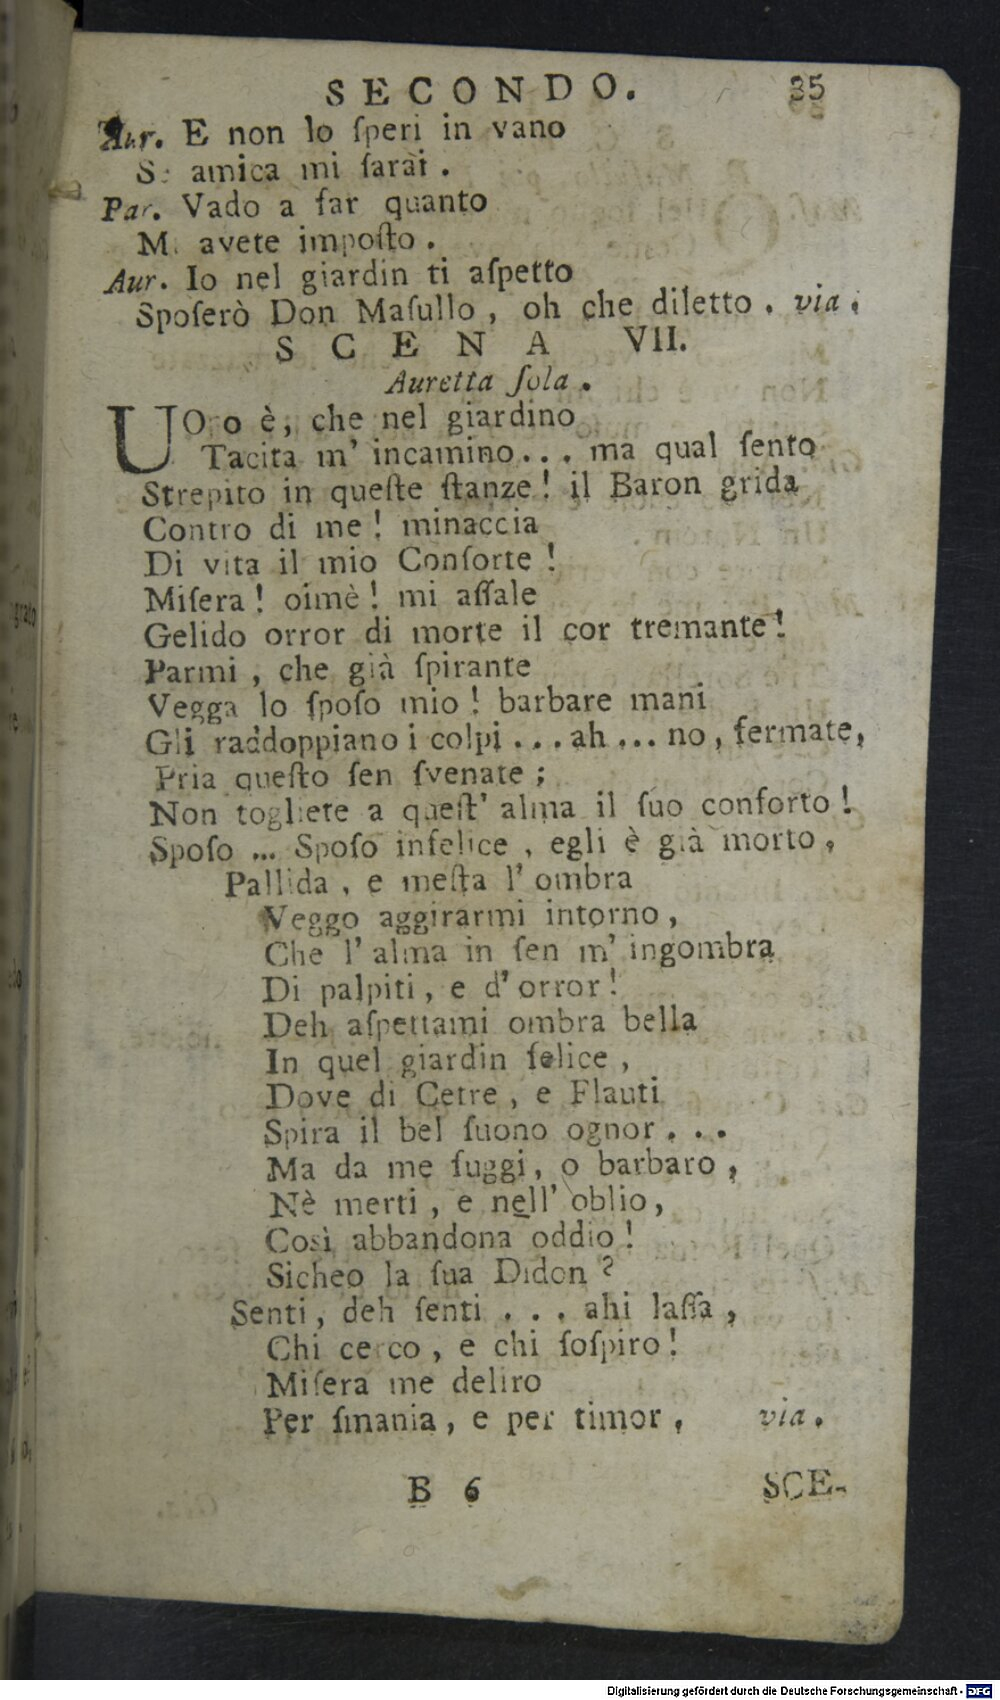 SECONDO. 35
Aur. E non lo ſperi in vano
Se amica mi ſarai.
Par. Vado a far quanto
M. avete impoſto.
Aur. Io nel giardin ti aſpetto
Spoſerò Don Maſullo, oh che diletto. via.
SCENA VII.
Auretta ſola.
UOpo è, che nel giardino
Tacita m' incamino... ma qual ſento
Strepito in queſte ſtanze! il Baron grida
Contro di me! minaccia
Di vita il mio Conſorte!
Miſera! oimè! mi aſſale
Gelido orror di morte il cor tremante!
Parmi, che già ſpirante
Vegga lo ſpoſo mio! barbare mani
Gli raddoppiano i colpi... ah... no, fermate,
Pria queſto ſen ſvenate;
Non togliete a queſt' alma il ſuo conforto!
Spoſo... Spoſo infelice, egli è già morto,
Pallida, e meſta l' ombra
Veggo aggirarmi intorno,
Che l' alma in ſen m' ingombra
Di palpiti, e d' orror!
Deh aſpettami ombra bella
In quel giardin felice,
Dove di Cetre, e Flauti
Spira il bel ſuono ognor...
Ma da me fuggi, o barbaro,
Nè merti, e nell' oblio,
Così abbandona oddio!
Sicheo la ſua Didon?
Senti, deh ſenti... ahi laſſa,
Chi cerco, e chi ſoſpiro!
Miſera me deliro
Per ſmania, e per timor, via.
B 6 SCE-
Digitalisierung gefördert durch die Deutsche Forschungsgemeinschaft - DFG